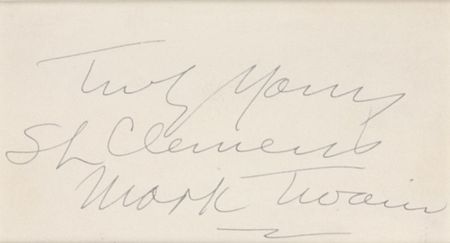 Truly Yours
SL Clemens
Mark Twain